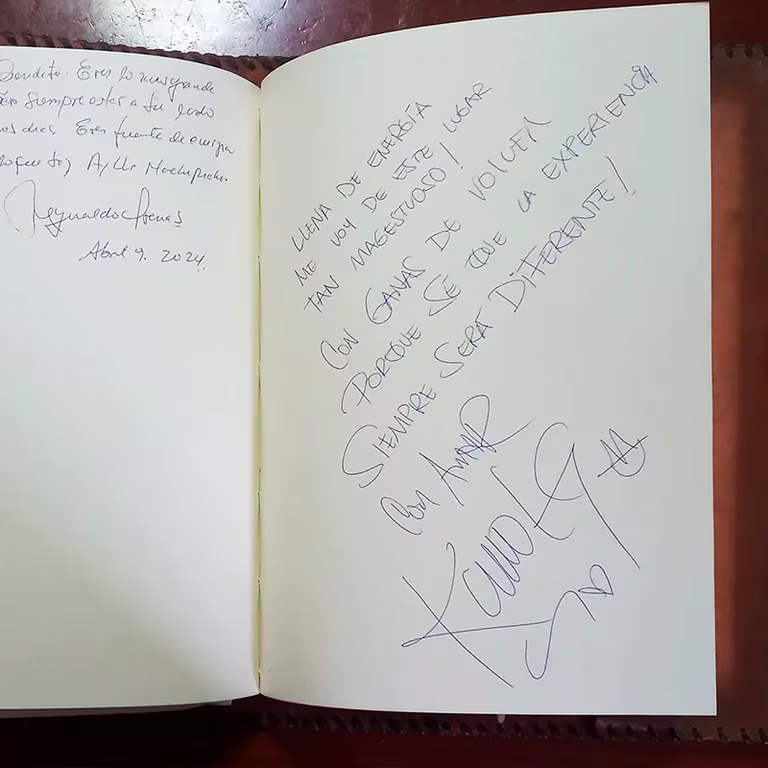 Bendito. Eres lo mas grande
siempre estar a tu lado
dias Eres fuente de energia
Ayllu Machupicchu.
Reynaldo Arenas
Abril 9. 2024.
LLENA DE ENERGÍA
ME VOY DE ESTE LUGAR
TAN MAGESTUOSO!
CON GANAS DE VOLVER
PORQUE SÉ QUE LA EXPERIENCIA
SIEMPRE SERÁ DIFERENTE!
CON AMOR
Karol G